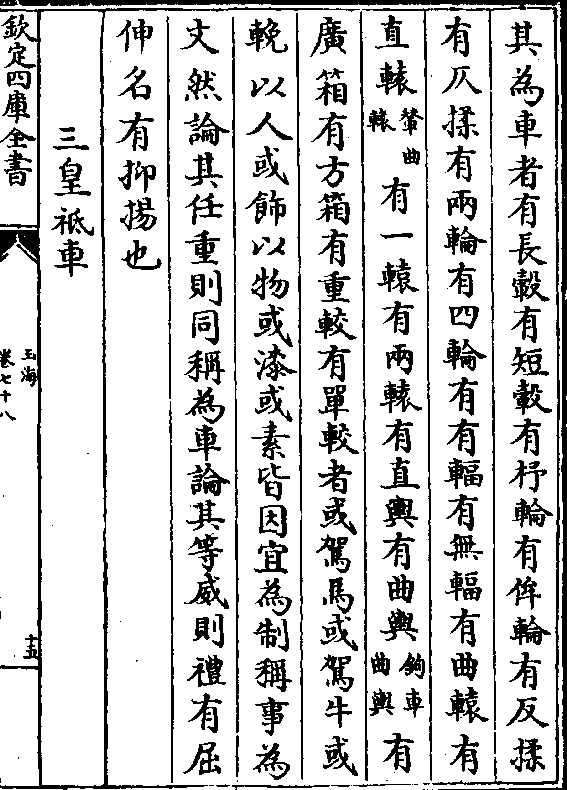 其為車者有長轂有短轂有杼輪有侔輪有反揉
有仄揉有兩輪有四輪有有輻有無輻有曲轅有
直轅輦曲轅有一轅有兩轅有直輿有曲輿鉤車曲輿有
廣箱有方箱有重較有單較者或駕馬或駕牛或
輓以人或飾以物或漆或素皆因宜為制稱事為
文然論其任重則同稱為車論其等威則禮有屈
伸名有抑揚也
三皇祗車
欽定四庫全書
玉海
卷七十八
十五